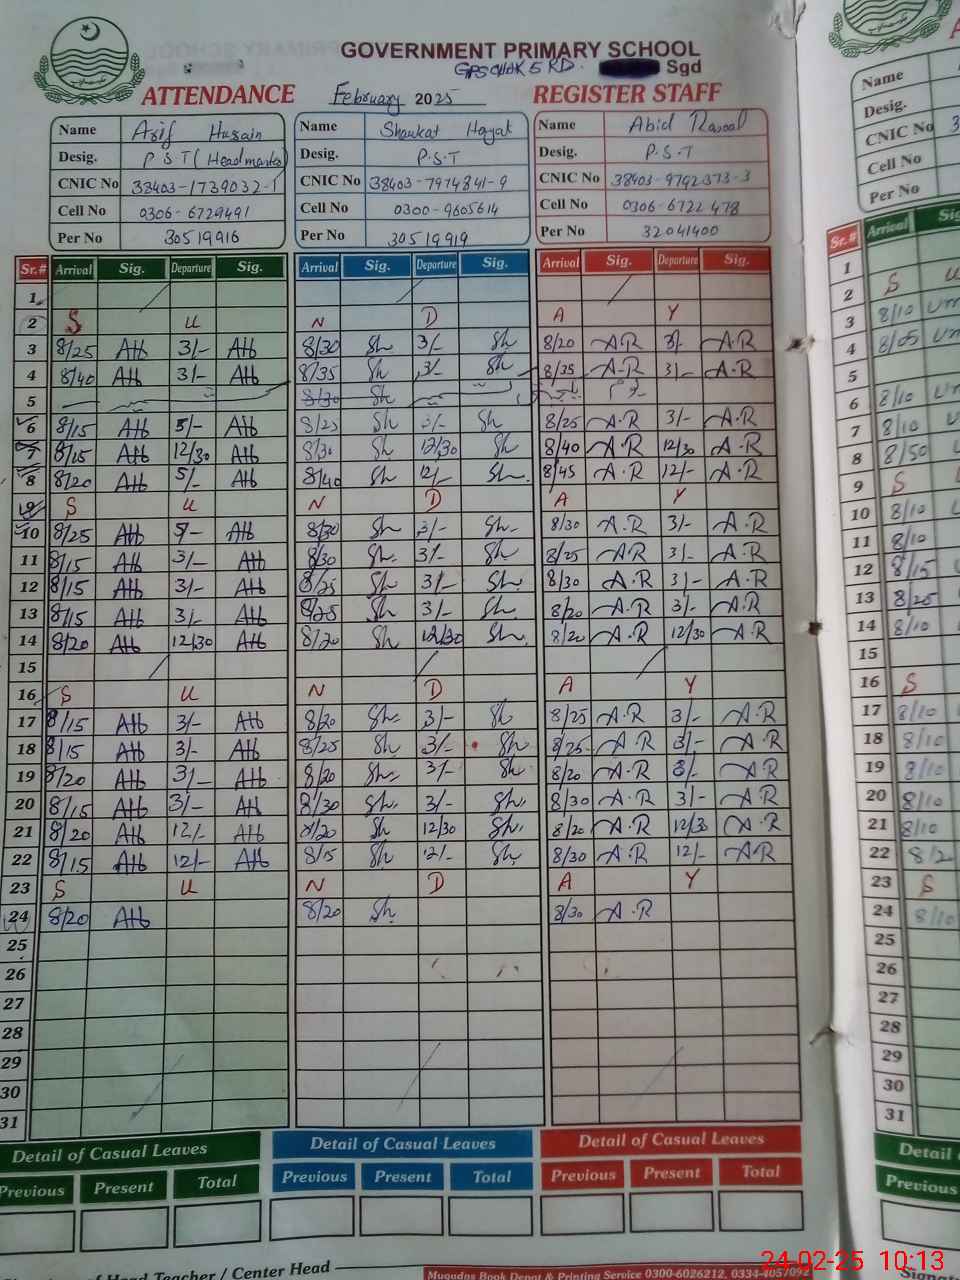 GOVERNMENT PRIMARY SCHOOL
GPS CHAK 5 RD. Sgd
ATTENDANCE February 2025 REGISTER STAFF
Name Asif Husain Name Shaukat Hayat Name Abid Rasool Name
Desig. P S T (Headmaster) Desig. P.S.T Desig. P.S.T Desig.
CNIC No 38403-1739032-1 CNIC No 38403-7974841-9 CNIC No 38403-9792373-3 CNIC No 3
Cell No 0306-6729491 Cell No 0300-9605614 Cell No 0306-6722478 Cell No
Per No 30519916 Per No 30519919 Per No 32041400 Per No
Sr.# Arrival Sig. Departure Sig. Arrival Sig. Departure Sig. Arrival Sig. Departure Sig. Sr.# Arrival
1 1
2 S U N D A Y 2 S
3 8/25 AH 3/- AH 8/30 Sh 3/- Sh 8/20 A.R 3/- A.R 3 8/10
4 8/40 AH 3/- AH 8/35 Sh 3/- Sh 8/35 A.R 3/- A.R 4 8/05
5 8/30 Sh 5
6 8/15 AH 3/- AH 8/25 Sh 3/- Sh 8/25 A.R 3/- A.R 6 8/10
7 8/15 AH 12/30 AH 8/30 Sh 12/30 Sh 8/40 A.R 12/30 A.R 7 8/10
8 8/20 AH 5/- AH 8/40 Sh 12/- Sh. 8/45 A.R 12/- A.R 8 8/50
9 S U N D A Y 9 S
10 8/25 AH AH 8/30 Sh 3/- Sh. 8/30 A.R 3/- A.R 10 8/10
11 8/15 AH 3/- AH 8/30 Sh. 3/- Sh 8/25 A.R 3/- A.R 11 8/10
12 8/15 AH 3/- AH 8/25 Sh 3/- Sh. 8/30 A.R 3/- A.R 12 8/15
13 8/15 AH 3/- AH 8/25 Sh 3/- Sh. 8/20 A.R 3/- A.R 13 8/25
14 8/20 AH 12/30 AH 8/20 Sh 12/30 Sh. 8/20 A.R 12/30 A.R 14 8/10
15 15
16 S U N D A Y 16 S
17 8/15 AH 3/- AH 8/20 Sh 3/- Sh 8/25 A.R 3/- A.R 17 8/10
18 8/15 AH 3/- AH 8/25 Sh 3/- Sh 8/25 A.R 3/- A.R 18 8/10
19 8/20 AH 3/- AH 8/20 Sh 3/- Sh 8/20 A.R 3/- A.R 19 8/10
20 8/15 AH 3/- AH 8/30 Sh. 3/- Sh. 8/30 A.R 3/- A.R 20 8/10
21 8/20 AH 12/- AH 8/20 Sh 12/30 Sh. 8/20 A.R 12/30 A.R 21 8/10
22 8/15 AH 12/- AH 8/15 Sh 12/- Sh 8/30 A.R 12/- A.R 22 8/2
23 S U N D A Y 23 S
24 8/20 AH 8/20 Sh. 8/30 A.R 24 8/10
25 25
26 26
27 27
28 28
29 29
30 30
31 31
Detail of Casual Leaves Detail of Casual Leaves Detail of Casual Leaves Detail
Previous Present Total Previous Present Total Previous Present Total Previous
of Head Teacher / Center Head
Muqudas Book Depot & Printing Service 0300-6026212, 0334-4057092
24-02-25 10:13